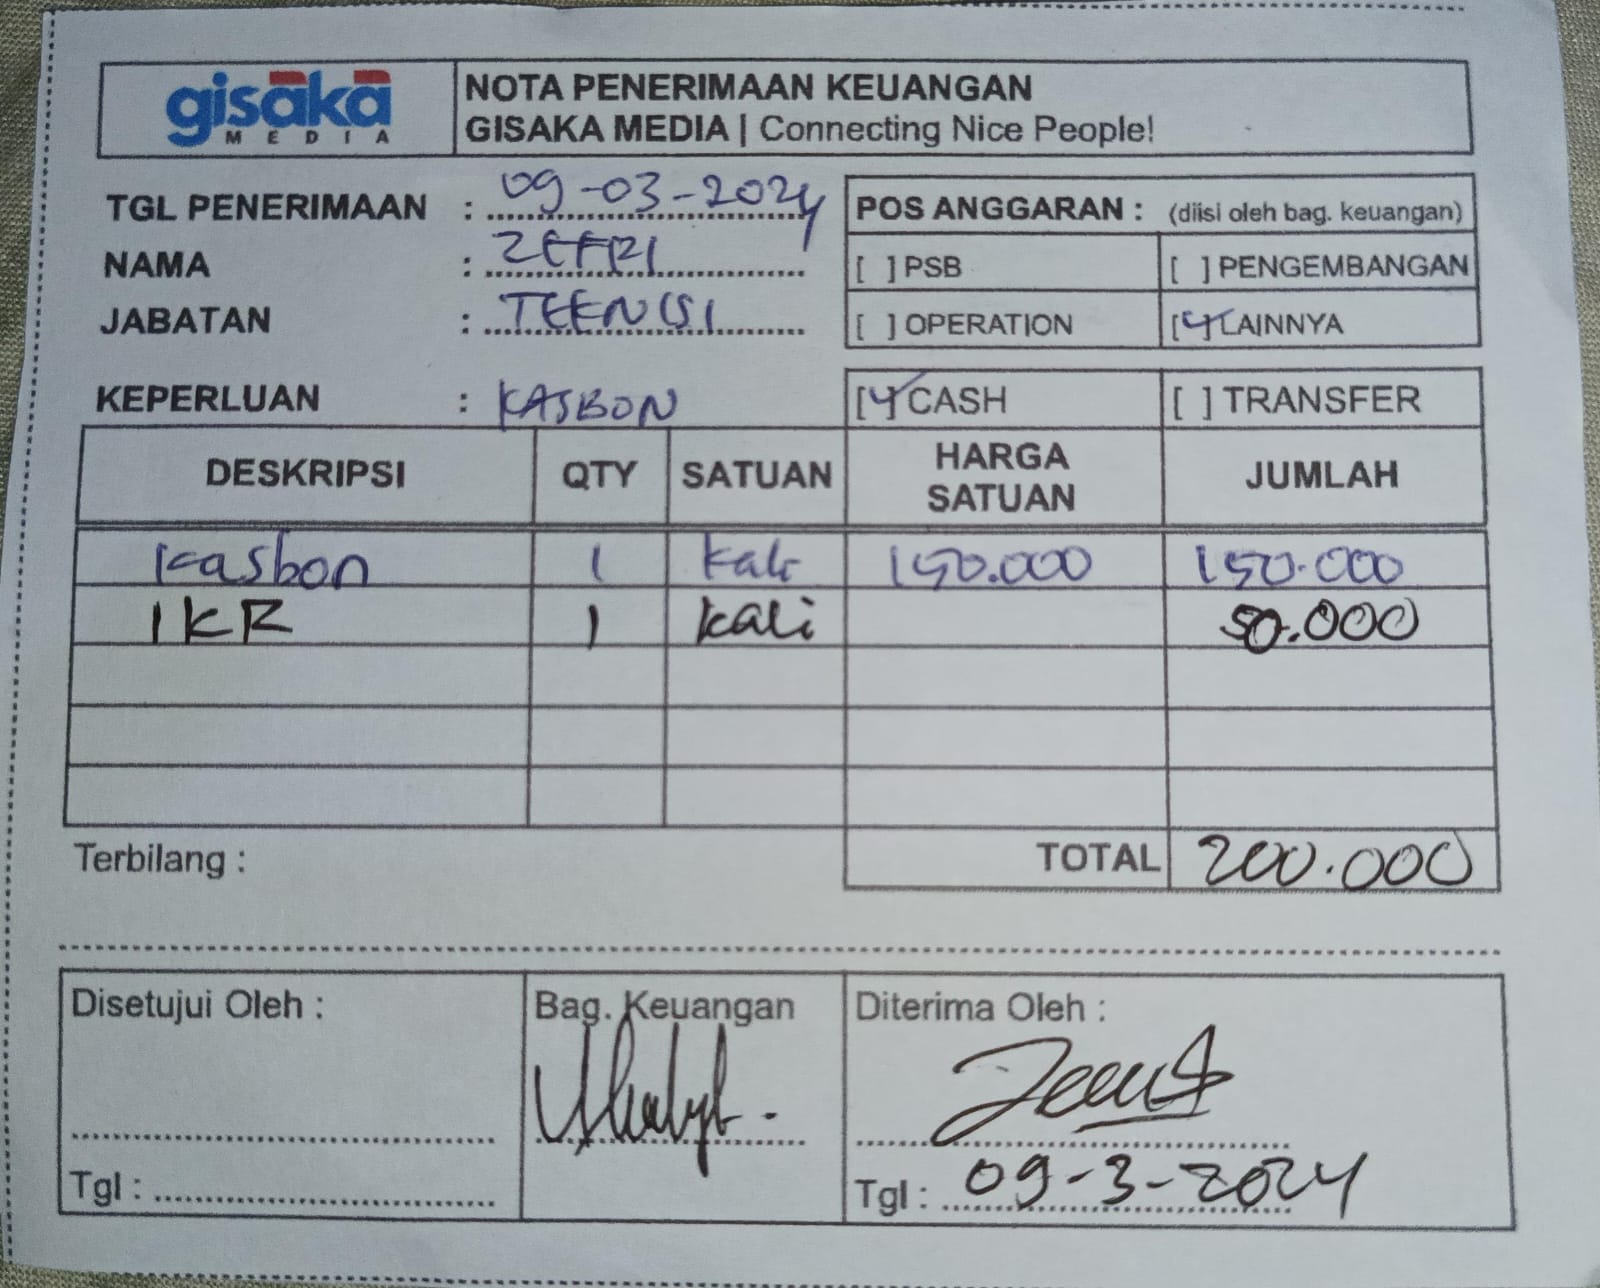 gisaka
MEDIA
NOTA PENERIMAAN KEUANGAN
GISAKA MEDIA | Connecting Nice People!
TGL PENERIMAAN : 09-03-2024
NAMA : ZEFRI
JABATAN : TEKNISI
POS ANGGARAN : (diisi oleh bag. keuangan)
[ ] PSB [ ] PENGEMBANGAN
[ ] OPERATION [✓] LAINNYA
KEPERLUAN : KASBON
[✓] CASH [ ] TRANSFER
DESKRIPSI QTY SATUAN HARGA SATUAN JUMLAH
Kasbon 1 Kali 150.000 150.000
IKR 1 Kali 50.000
Terbilang : TOTAL 200.000
Disetujui Oleh : Bag. Keuangan Diterima Oleh :
Tgl : Tgl : 09-3-2024